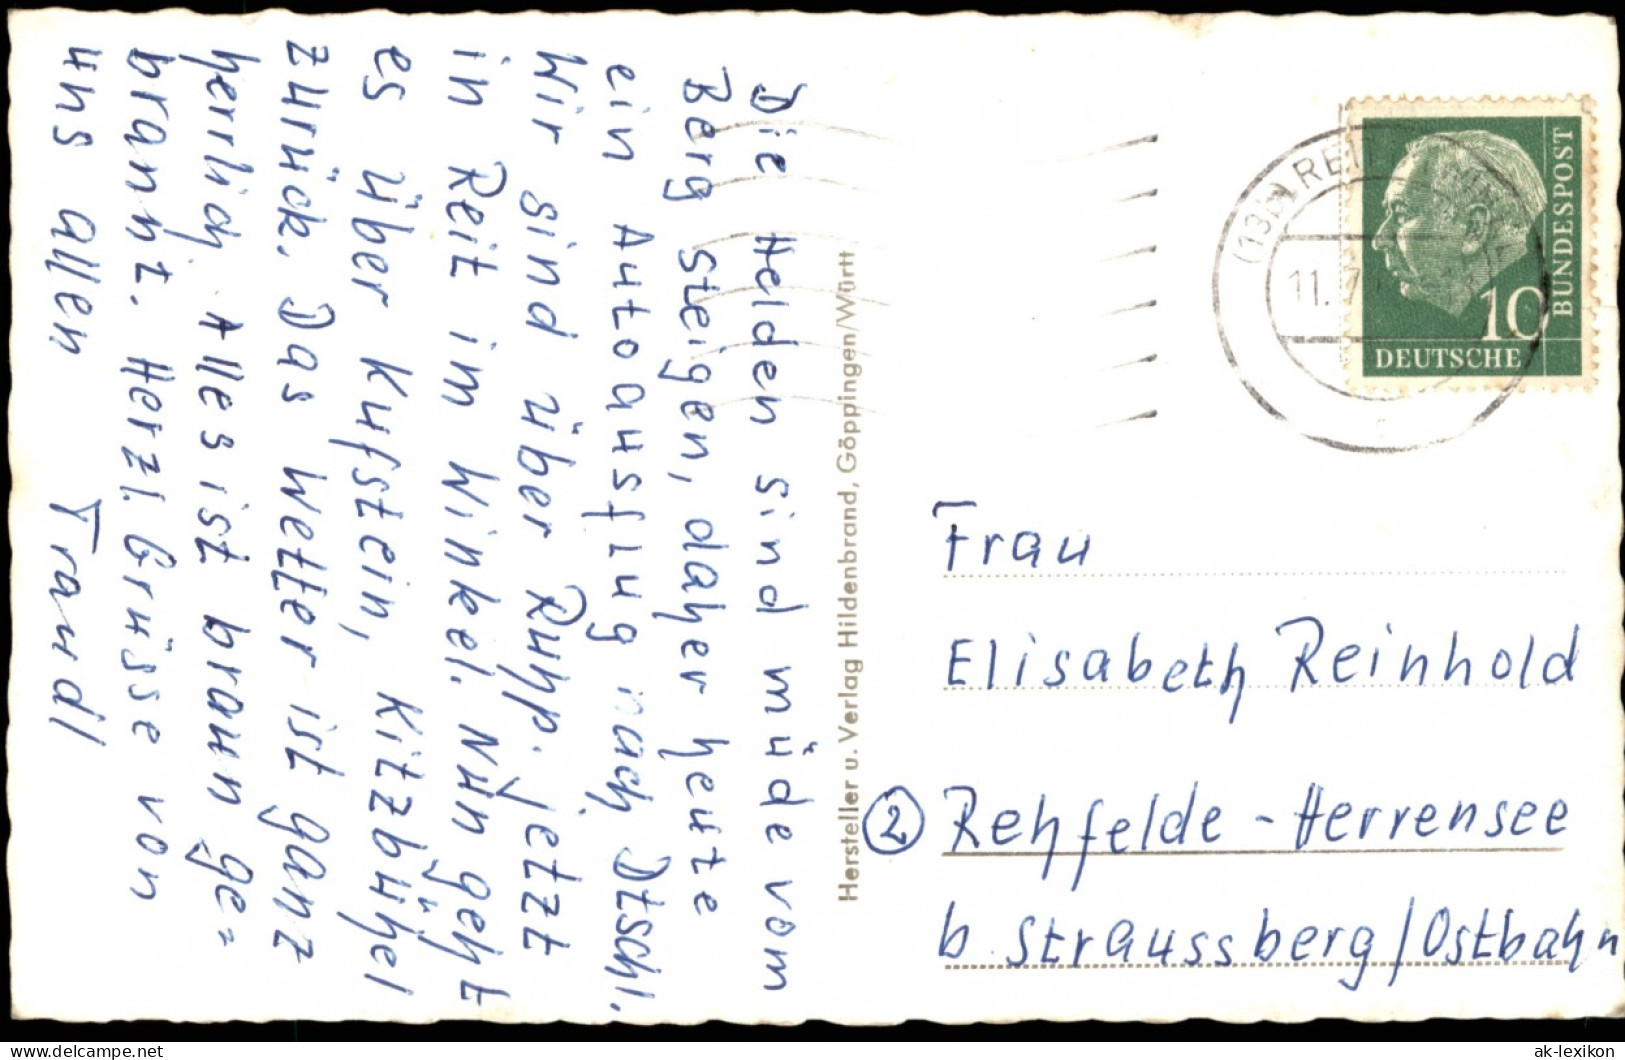 Die Helden sind müde vom
Berg steigen, daher heute
ein Autoausflug nach Dtschl.
Wir sind über Ruhp. jetzt
in Reit im Winkel. Nun geht
es über Kufstein, Kitzbühel
zurück. Das Wetter ist ganz
herrlich Alles ist braun ge=
brannt. Herzl. Grüsse von
uns allen Traudl
Hersteller u. Verlag Hildenbrand, Göppingen/Württ
BUNDESPOST
10
DEUTSCHE
11.7
Frau
Elisabeth Reinhold
2 Rehfelde - Herrensee
b. Straussberg/Ostbahn
ak-lexikon